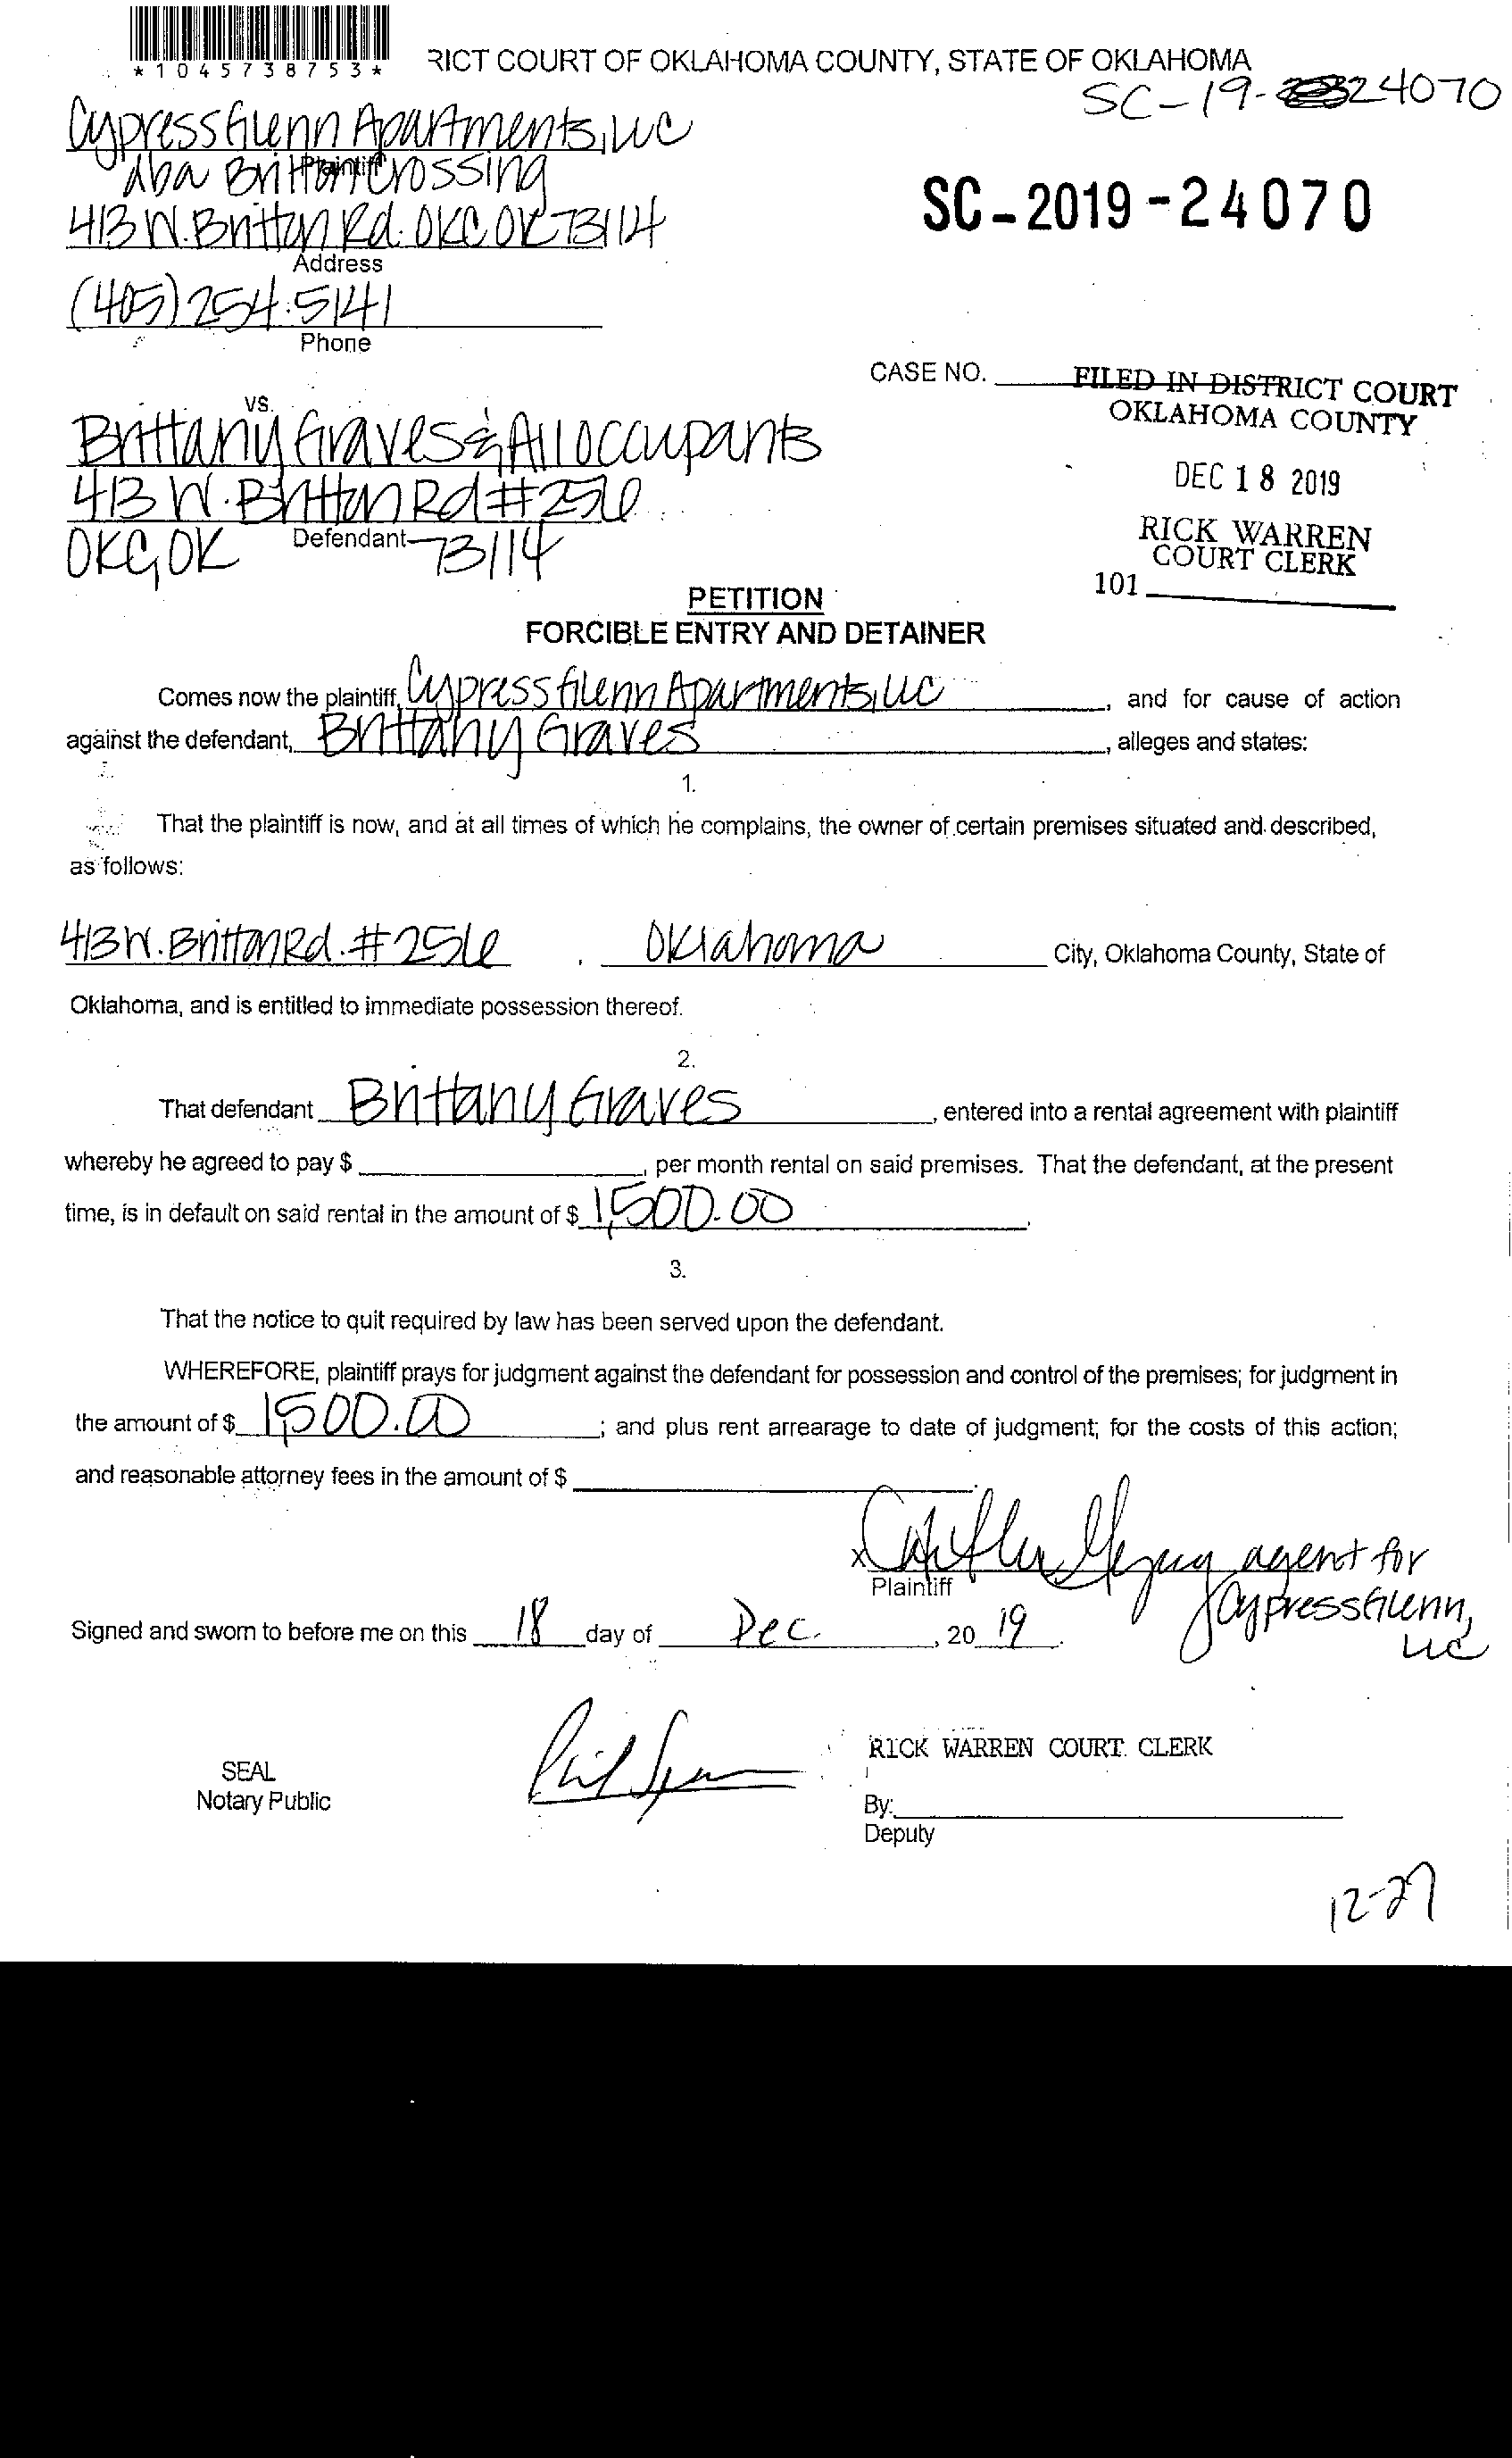 *1045738753*
RICT COURT OF OKLAHOMA COUNTY, STATE OF OKLAHOMA
SC-19-24070
Cypress Glenn Apartments, LLC
dba Britton Crossing
Plaintiff
413 W. Britton Rd. OKC OK 73114
SC-2019-24070
Address
(405) 254.5141
Phone
CASE NO.
FILED IN DISTRICT COURT
OKLAHOMA COUNTY
DEC 18 2019
RICK WARREN
COURT CLERK
101
vs.
Brittany Graves & All Occupants
413 W. Britton Rd #256
OKC, OK 73114
Defendant
PETITION
FORCIBLE ENTRY AND DETAINER
Comes now the plaintiff, Cypress Glenn Apartments, LLC, and for cause of action
against the defendant, Brittany Graves, alleges and states:
1.
That the plaintiff is now, and at all times of which he complains, the owner of certain premises situated and described,
as follows:
413 W. Britton Rd. #256, Oklahoma City, Oklahoma County, State of
Oklahoma, and is entitled to immediate possession thereof.
2.
That defendant Brittany Graves, entered into a rental agreement with plaintiff
whereby he agreed to pay $, per month rental on said premises. That the defendant, at the present
time, is in default on said rental in the amount of $ 1,500.00.
3.
That the notice to quit required by law has been served upon the defendant.
WHEREFORE, plaintiff prays for judgment against the defendant for possession and control of the premises; for judgment in
the amount of $ 1500.00; and plus rent arrearage to date of judgment; for the costs of this action;
and reasonable attorney fees in the amount of $.
x agent for
Plaintiff
Cypress Glenn,
LLC
Signed and sworn to before me on this 18 day of Dec., 20 19.
RICK WARREN COURT CLERK
SEAL
Notary Public
By:
Deputy
12-27